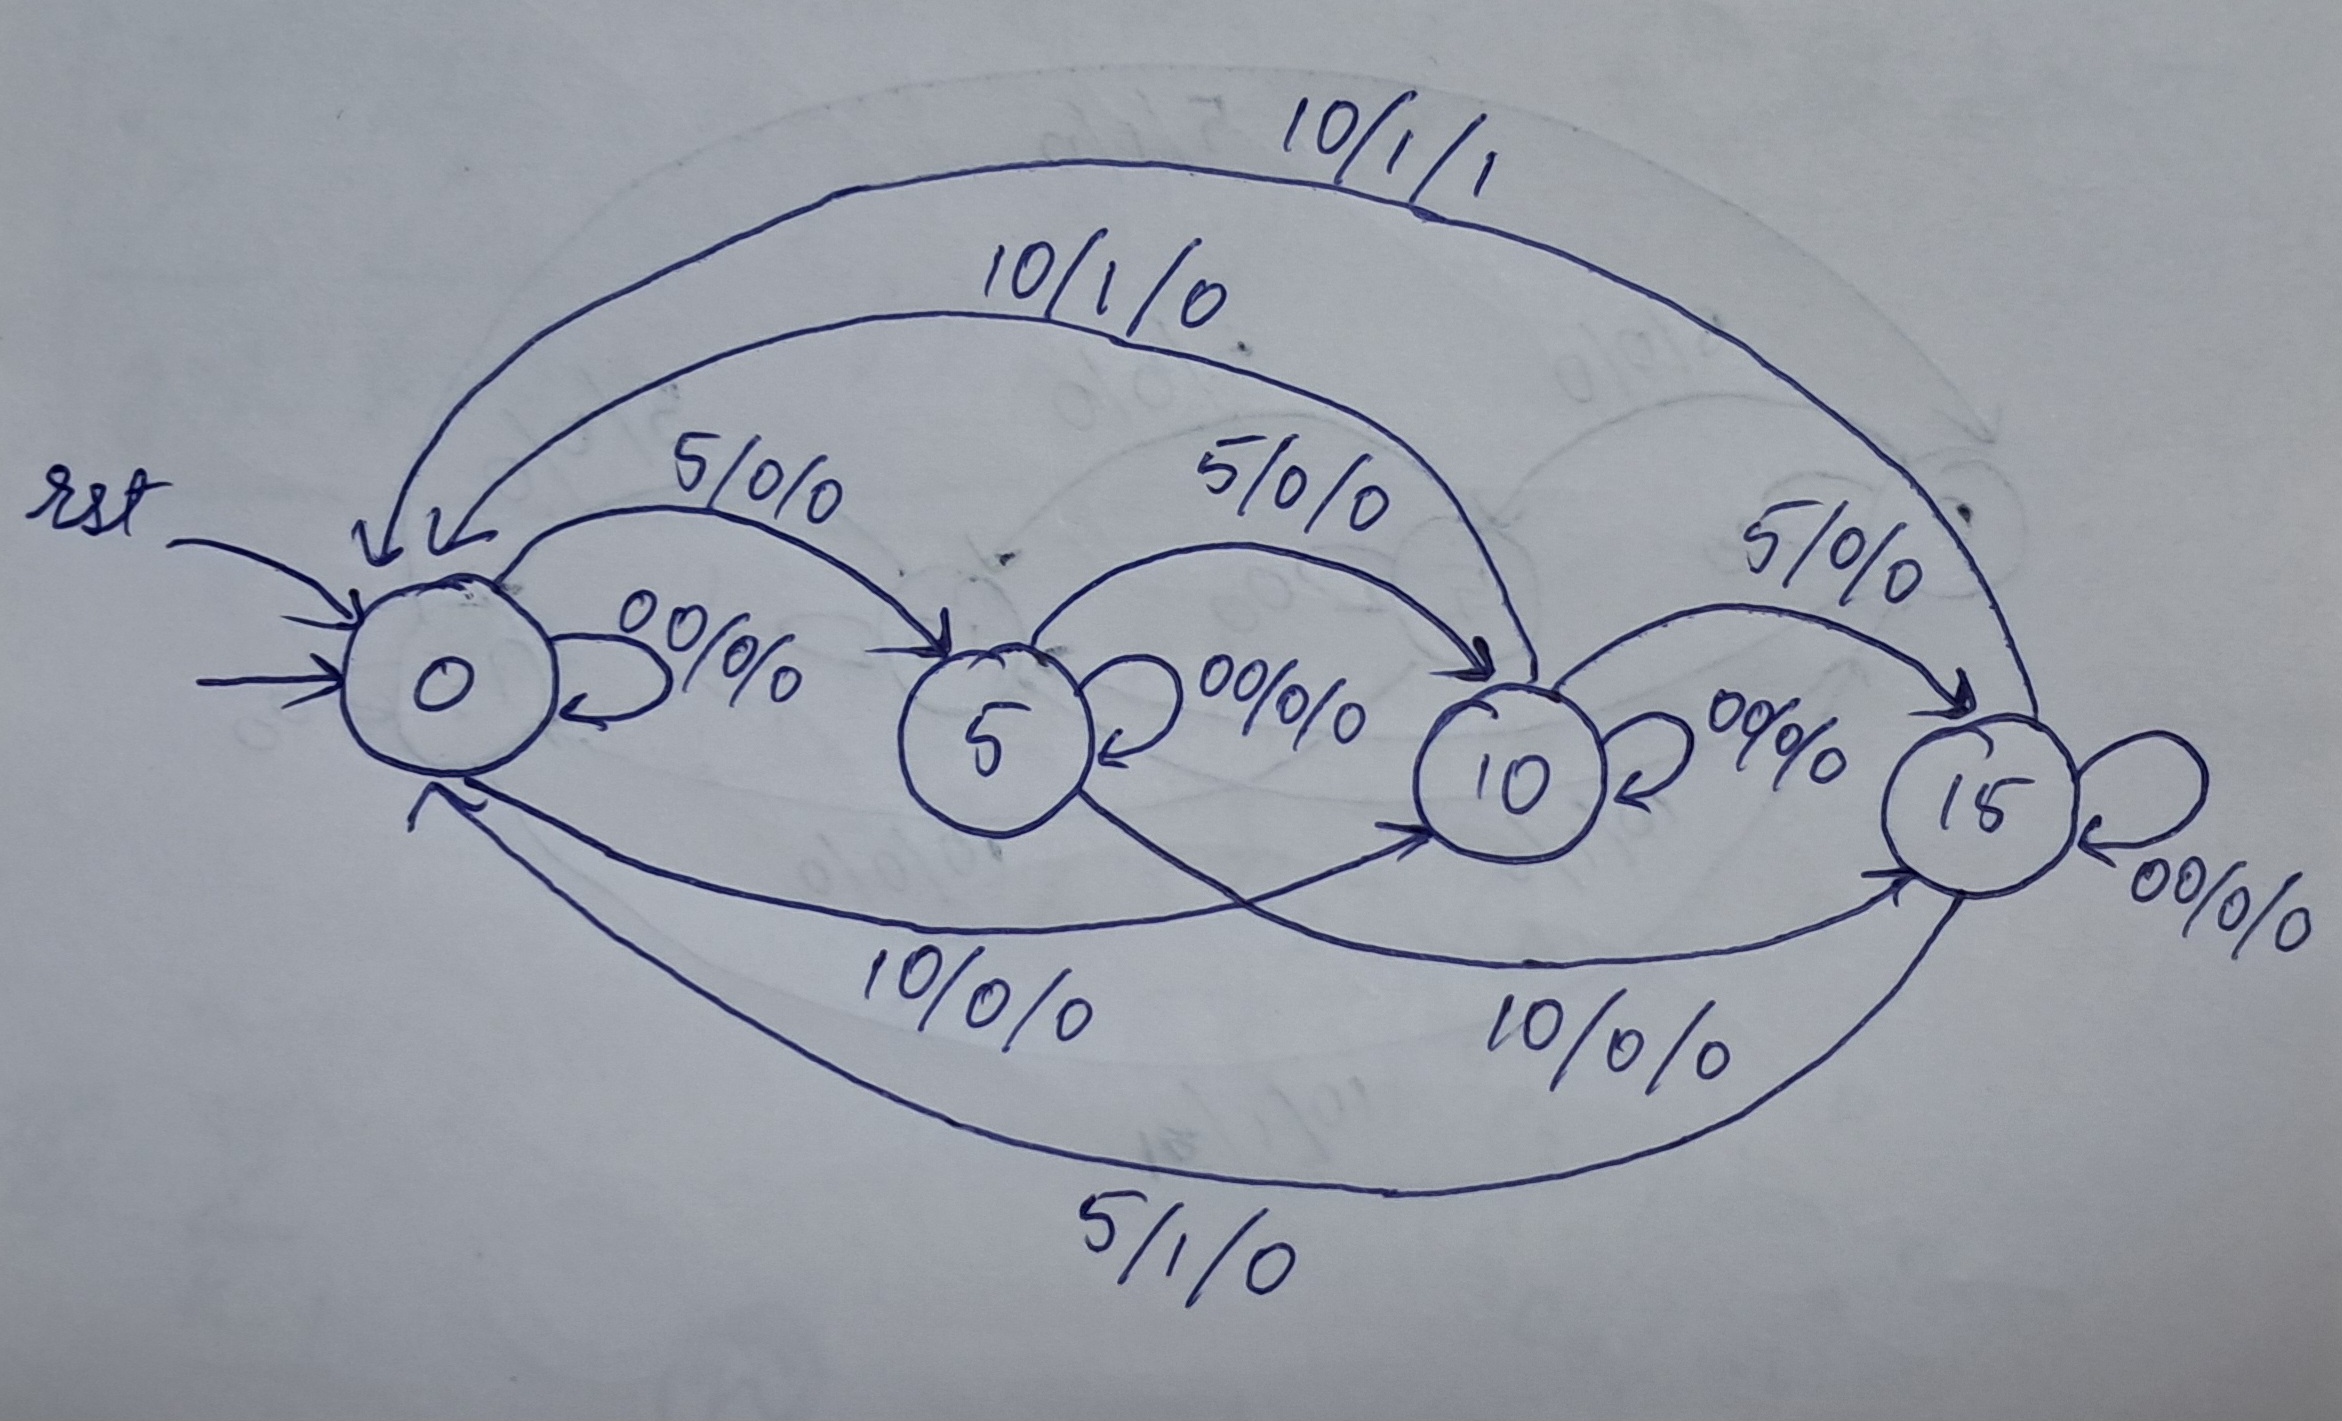 10/1/1
10/1/0
rst
5/0/0
5/0/0
5/0/0
00/0/0
00/0/0
00/0/0
00/0/0
0
5
10
15
10/0/0
10/0/0
5/1/0